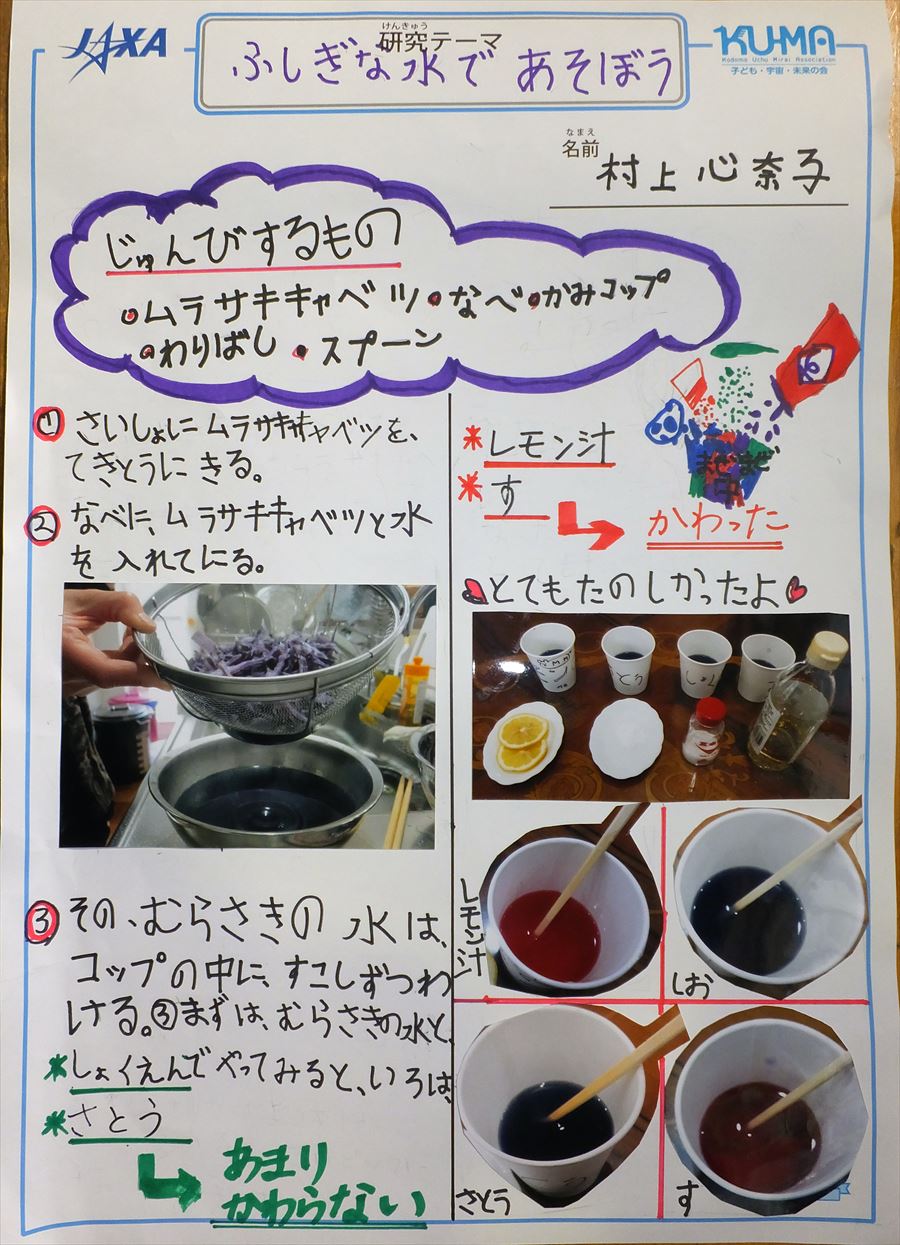 JAXA
けんきゅう
研究テーマ
ふしぎな水で あそぼう
KU-MA
Kodomo Uchu Mirai Association
子ども・宇宙・未来の会
なまえ
名前
村上心奈子
じゅんびするもの
ムラサキキャベツ・なべ・かみコップ
・わりばし ・スプーン
① さいしょにムラサキキャベツを、
てきとうに きる。
② なべに、ムラサキキャベツと水
を 入れてにる。
③ その、むらさきの 水は、
コップの中に、すこしずつわ
ける。③まずは、むらさきの水と、
*しょくえんでやってみると、いろは、
*さとう
あまり
かわらない
まぜまぜ
中
*レモン汁
*す
かわった
とてもたのしかったよ
レモン汁
しお
さとう
す